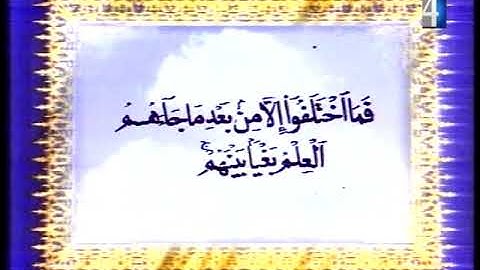 4
فَمَا ٱخْتَلَفُوٓا۟ إِلَّا مِنۢ بَعْدِ مَا جَآءَهُمُ
ٱلْعِلْمُ بَغْيًۢا بَيْنَهُمْ ۚ